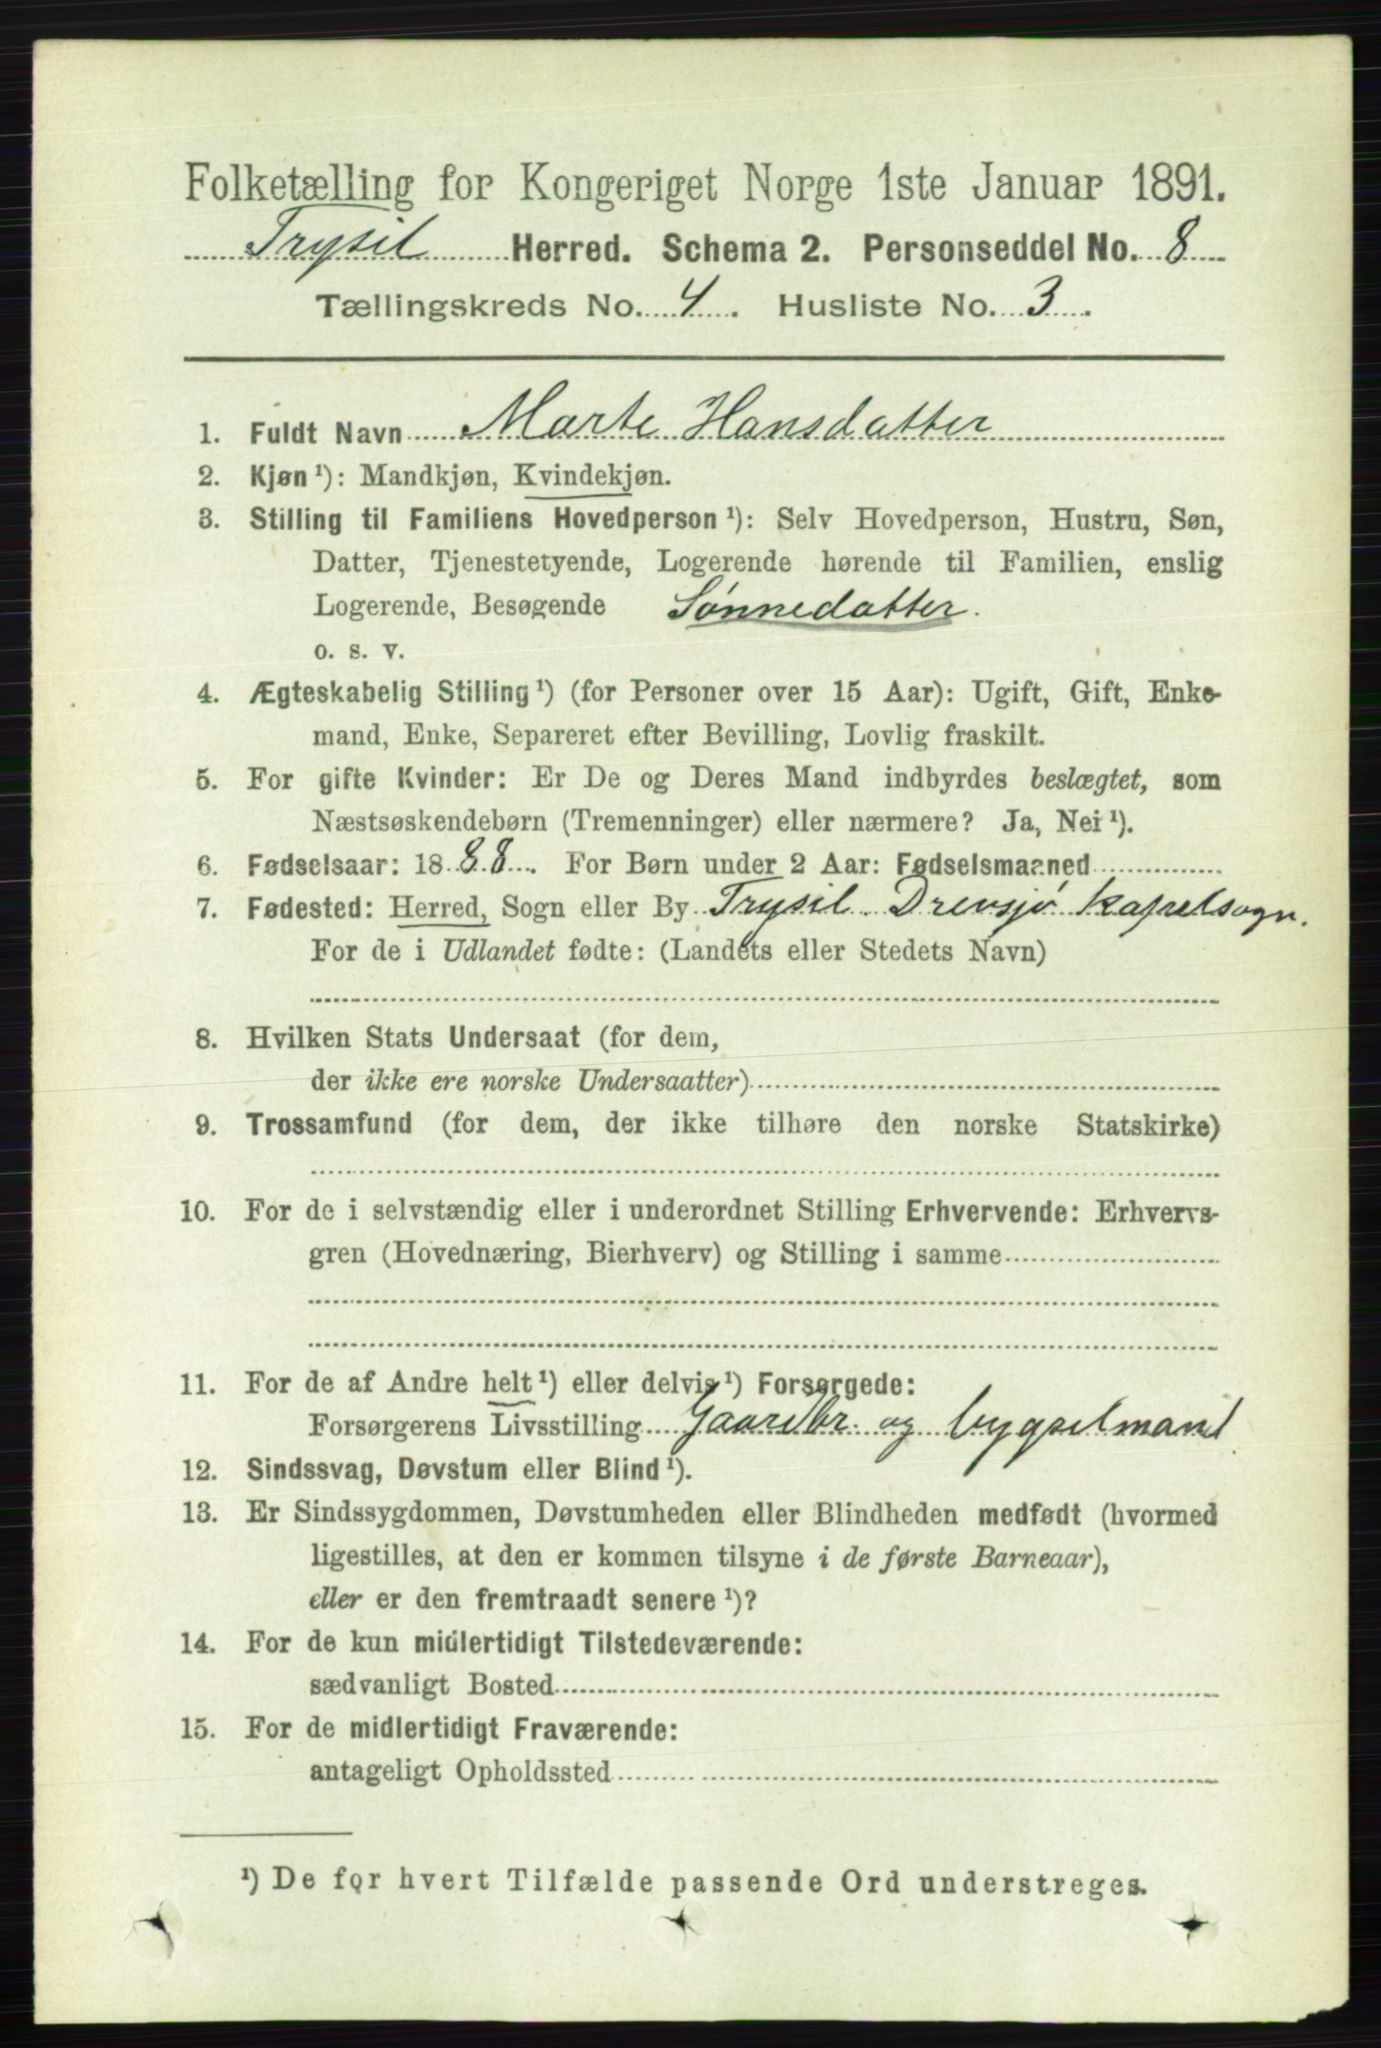 Folketælling for Kongeriget Norge 1ste Januar 1891.
Trysil Herred. Schema 2. Personseddel No. 8
Tællingskreds No. 4. Husliste No. 3.
1. Fuldt Navn Marte Hansdatter
2. Kjøn ¹): Mandkjøn, Kvindekjøn.
3. Stilling til Familiens Hovedperson ¹): Selv Hovedperson, Hustru, Søn,
Datter, Tjenestetyende, Logerende hørende til Familien, enslig
Logerende, Besøgende Sønnedatter.
o. s. v.
4. Ægteskabelig Stilling ¹) (for Personer over 15 Aar): Ugift, Gift, Enke-
mand, Enke, Separeret efter Bevilling, Lovlig fraskilt.
5. For gifte Kvinder: Er De og Deres Mand indbyrdes beslægtet, som
Næstsøskendebørn (Tremenninger) eller nærmere? Ja, Nei ¹).
6. Fødselsaar: 1888. For Børn under 2 Aar: Fødselsmaaned
7. Fødested: Herred, Sogn eller By Trysil Drevsjø Kapelsogn.
For de i Udlandet fødte: (Landets eller Stedets Navn)
8. Hvilken Stats Undersaat (for dem,
der ikke ere norske Undersaatter)
9. Trossamfund (for dem, der ikke tilhøre den norske Statskirke)
10. For de i selvstændig eller i underordnet Stilling Erhvervende: Erhvervs-
gren (Hovednæring, Bierhverv) og Stilling i samme
11. For de af Andre helt ¹) eller delvis ¹) Forsørgede:
Forsørgerens Livsstilling Gaardbr. og bygselmand
12. Sindssvag, Døvstum eller Blind ¹).
13. Er Sindssygdommen, Døvstumheden eller Blindheden medfødt (hvormed
ligestilles, at den er kommen tilsyne i de første Barneaar),
eller er den fremtraadt senere ¹)?
14. For de kun midlertidigt Tilstedeværende:
sædvanligt Bosted
15. For de midlertidigt Fraværende:
antageligt Opholdssted
¹) De for hvert Tilfælde passende Ord understreges.